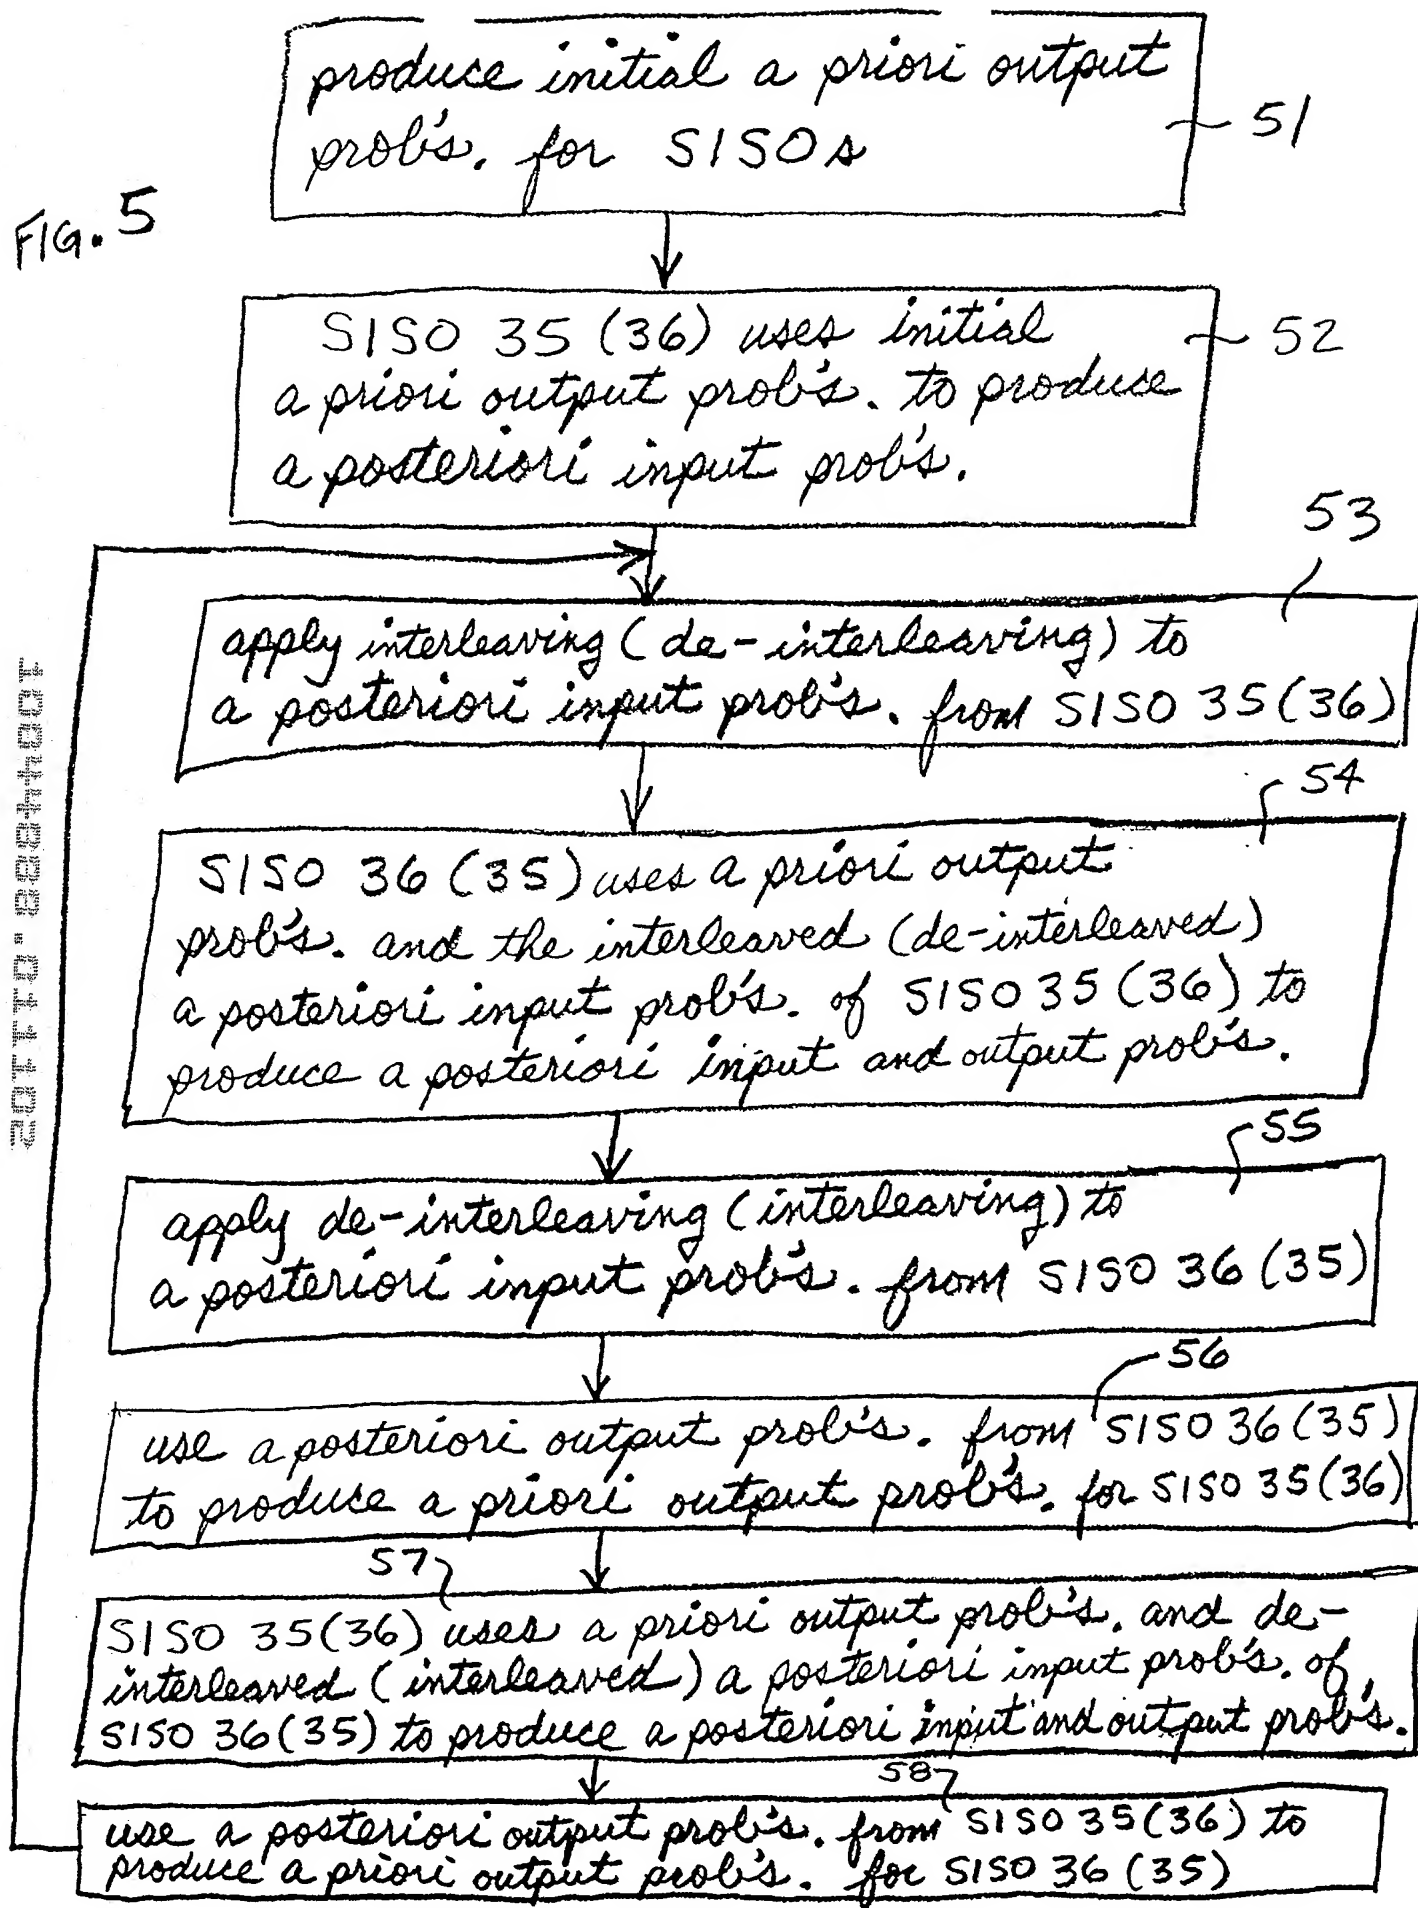 produce initial a priori output
prob's. for SISOs
51
FIG. 5
SISO 35 (36) uses initial
a priori output prob's. to produce
a posteriori input prob's.
52
53
apply interleaving (de-interleaving) to
a posteriori input prob's. from SISO 35 (36)
54
SISO 36 (35) uses a priori output
prob's. and the interleaved (de-interleaved)
a posteriori input prob's. of SISO 35 (36) to
produce a posteriori input and output prob's.
55
apply de-interleaving (interleaving) to
a posteriori input prob's. from SISO 36 (35)
56
use a posteriori output prob's. from SISO 36 (35)
to produce a priori output prob's. for SISO 35 (36)
57
SISO 35 (36) uses a priori output prob's. and de-
interleaved (interleaved) a posteriori input prob's. of
SISO 36 (35) to produce a posteriori input and output prob's.
58
use a posteriori output prob's. from SISO 35 (36) to
produce a priori output prob's. for SISO 36 (35)